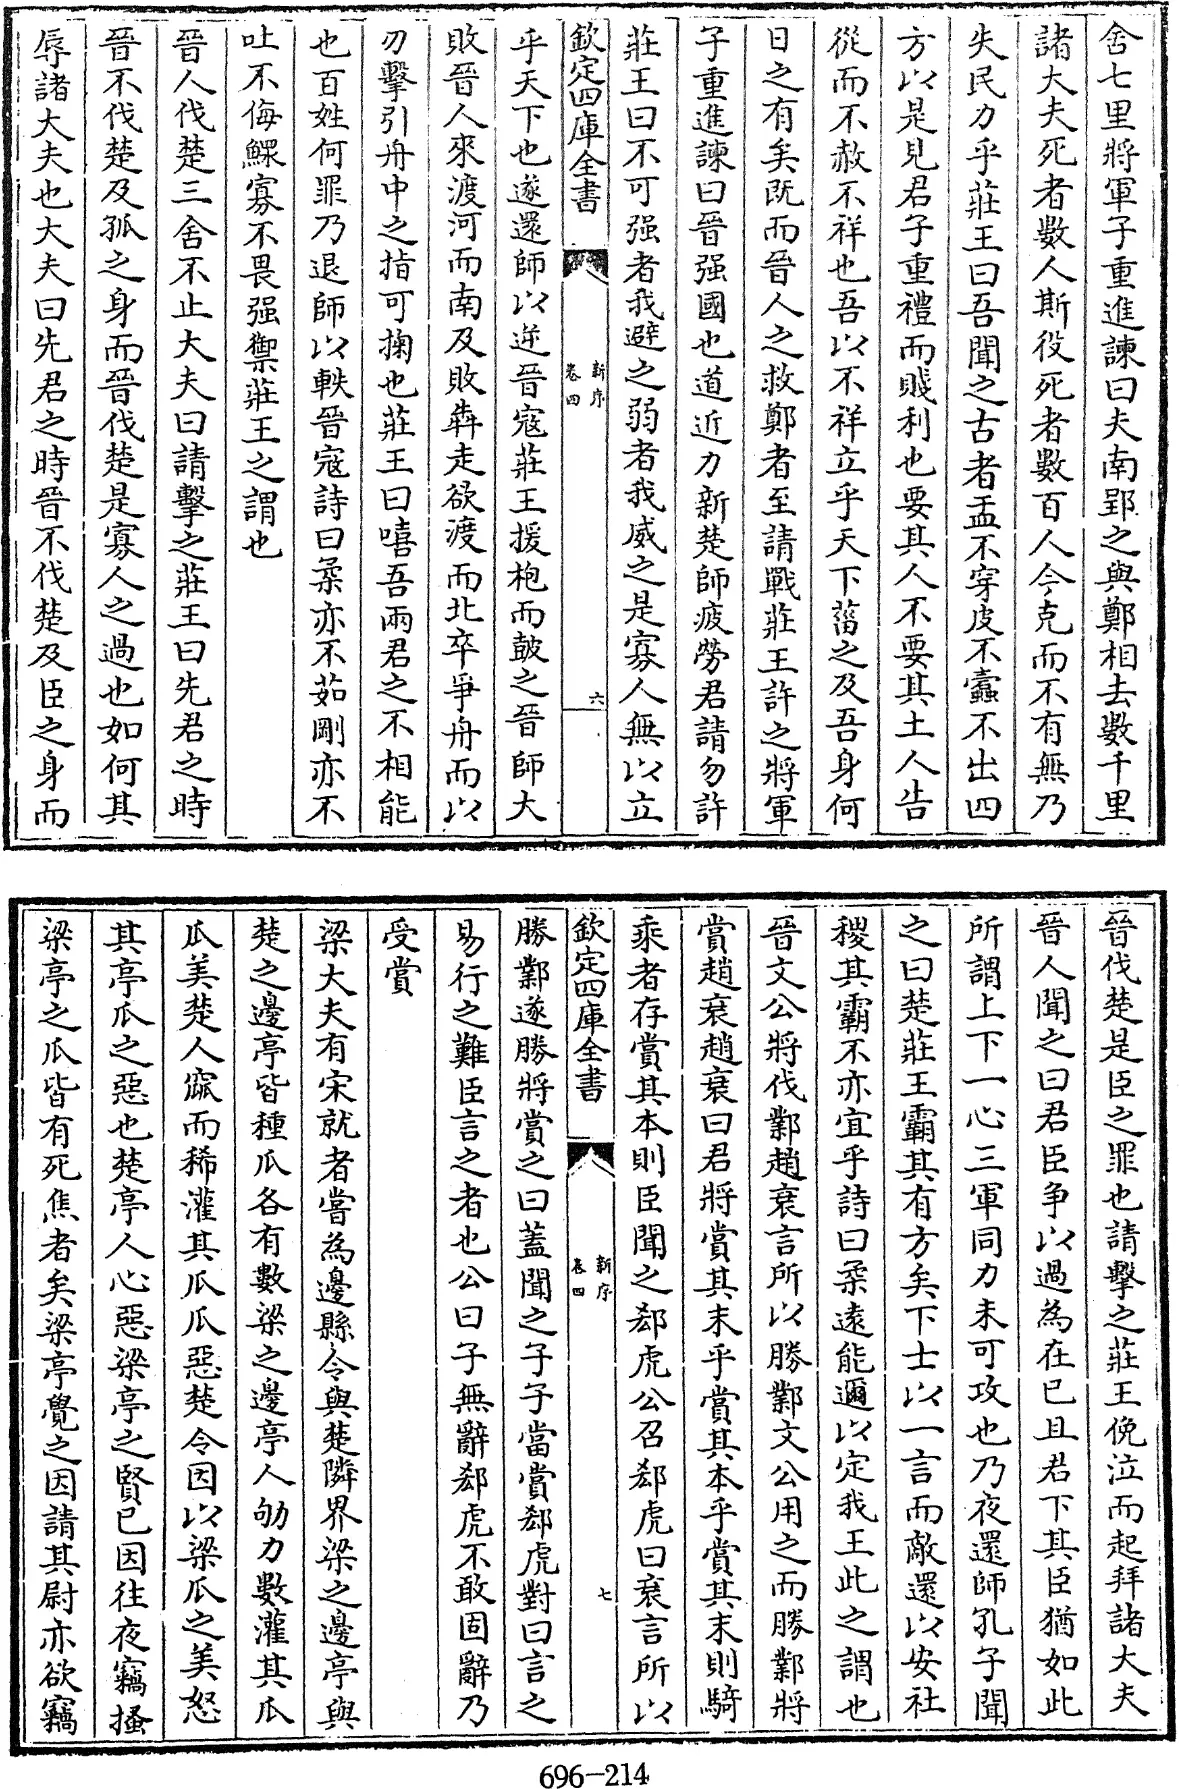 舍七里將軍子重進諫曰夫南郢之與鄭相去數千里
諸大夫死者數人斯役死者數百人今克而不有無乃
失民力乎莊王曰吾聞之古者盂不穿皮不蠹不出四
方以是見君子重禮而賤利也要其人不要其土人告
從而不赦不祥也吾以不祥立乎天下菑之及吾身何
日之有矣既而晉人之救鄭者至請戰莊王許之將軍
子重進諫曰晉强國也道近力新楚師疲勞君請勿許
莊王曰不可强者我避之弱者我威之是寡人無以立
欽定四庫全書
新序
卷四
六
乎天下也遂還師以逆晉寇莊王援枹而鼓之晉師大
敗晉人來渡河而南及敗犇走欲渡而北卒爭舟而以
刃擊引舟中之指可掬也莊王曰嘻吾兩君之不相能
也百姓何罪乃退師以軼晉寇詩曰柔亦不茹剛亦不
吐不侮鰥寡不畏强禦莊王之謂也
晉人伐楚三舍不止大夫曰請擊之莊王曰先君之時
晉不伐楚及孤之身而晉伐楚是寡人之過也如何其
辱諸大夫也大夫曰先君之時晉不伐楚及臣之身而
晉伐楚是臣之罪也請擊之莊王俛泣而起拜諸大夫
晉人聞之曰君臣争以過為在已且君下其臣猶如此
所謂上下一心三軍同力未可攻也乃夜還師孔子聞
之曰楚莊王霸其有方矣下士以一言而敵還以安社
稷其霸不亦宜乎詩曰柔遠能邇以定我王此之謂也
晉文公將伐鄴趙衰言所以勝鄴文公用之而勝鄴將
賞趙衰趙衰曰君將賞其末乎賞其本乎賞其末則騎
乘者存賞其本則臣聞之郄虎公召郄虎曰衰言所以
欽定四庫全書
新序
卷四
七
勝鄴遂勝將賞之曰蓋聞之子子當賞郄虎對曰言之
易行之難臣言之者也公曰子無辭郄虎不敢固辭乃
受賞
梁大夫有宋就者嘗為邊縣令與楚隣界梁之邊亭與
楚之邊亭皆種瓜各有數梁之邊亭人劬力數灌其瓜
瓜美楚人窳而稀灌其瓜瓜惡楚令因以梁瓜之美怒
其亭瓜之惡也楚亭人心惡梁亭之賢已因往夜竊搔
梁亭之瓜皆有死焦者矣梁亭覺之因請其尉亦欲竊
696-214